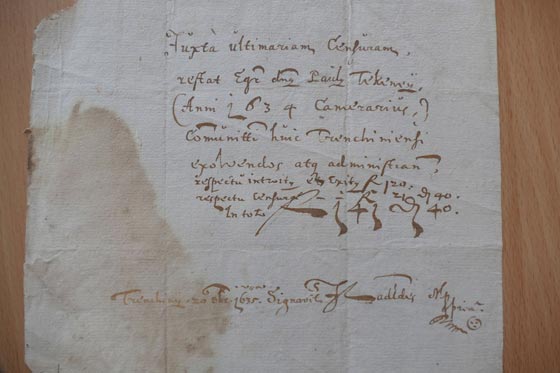 Juxtà ultimariam Censuram,
restat Egr dnus Paulus Tekeney,
(Anni 1634 Camerarius,)
Comunitti huic Trenchiniensi
exolvendos atq administran,
respectu introitus et Exitus f 120.
respectu Censurae f 21 d 40.
In toto f 141 d 40.
Trenchiny 20 1635.